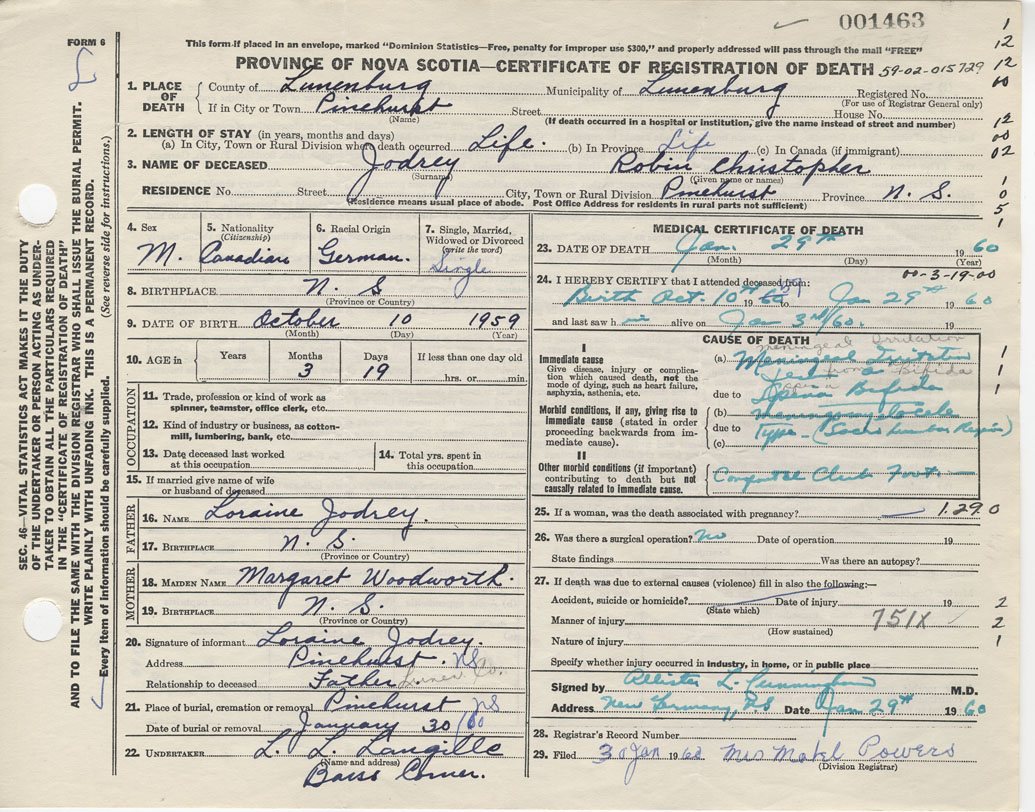 001463
FORM 6
This form if placed in an envelope, marked "Dominion Statistics—Free, penalty for improper use $300," and properly addressed will pass through the mail "FREE"
PROVINCE OF NOVA SCOTIA—CERTIFICATE OF REGISTRATION OF DEATH 59-02-015729
1. PLACE OF DEATH { County of Lunenburg Municipality of Lunenburg Registered No.
(For use of Registrar General only)
If in City or Town Pinehurst Street House No.
(Name) (If death occurred in a hospital or institution, give the name instead of street and number)
2. LENGTH OF STAY (in years, months and days)
(a) In City, Town or Rural Division where death occurred Life. (b) In Province Life (c) In Canada (if immigrant)
3. NAME OF DECEASED Jodrey Robin Christopher
(Surname) (Given name or names)
RESIDENCE No. Street City, Town or Rural Division Pinehurst Province N. S.
(Residence means usual place of abode. Post Office Address for residents in rural parts not sufficient)
4. Sex M.
5. Nationality (Citizenship) Canadian
6. Racial Origin German.
7. Single, Married, Widowed or Divorced (write the word) Single
8. BIRTHPLACE N. S
(Province or Country)
9. DATE OF BIRTH October 10 1959
(Month) (Day) (Year)
10. AGE in Years Months 3 Days 19 If less than one day old
hrs. or min.
OCCUPATION
11. Trade, profession or kind of work as spinner, teamster, office clerk, etc.
12. Kind of industry or business, as cotton-mill, lumbering, bank, etc.
13. Date deceased last worked at this occupation
14. Total yrs. spent in this occupation
15. If married give name of wife or husband of deceased
FATHER
16. NAME Loraine Jodrey.
17. BIRTHPLACE N. S.
(Province or Country)
MOTHER
18. MAIDEN NAME Margaret Woodworth.
19. BIRTHPLACE N. S.
(Province or Country)
20. Signature of informant Loraine Jodrey.
Address Pinehurst. NS
Relationship to deceased Father Lunen Co.
21. Place of burial, cremation or removal Pinehurst NS
Date of burial or removal January 30/60
22. UNDERTAKER L. L. Langille
(Name and address)
Barss Corner.
MEDICAL CERTIFICATE OF DEATH
23. DATE OF DEATH Jan. 29th 1960
(Month) (Day) (Year)
00-3-19-00
24. I HEREBY CERTIFY that I attended deceased from:
Birth Oct. 10th 19 to Jan 29th 1960
and last saw him alive on Jan 3rd/60. 19
CAUSE OF DEATH
meningeal Irritation
I
Immediate cause
Give disease, injury or complication which caused death, not the mode of dying, such as heart failure, asphyxia, asthenia, etc.
(a) Meningeal Irritation
from Bifida
due to Spina Bifida
Morbid conditions, if any, giving rise to immediate cause (stated in order proceeding backwards from immediate cause).
(b) meningomyelocele
due to Type - (Sacro lumbar Region)
(c)
II
Other morbid conditions (if important) contributing to death but not causally related to immediate cause.
Congenital Club Foot
25. If a woman, was the death associated with pregnancy? 1.29.0
26. Was there a surgical operation? No Date of operation 19
State findings Was there an autopsy?
27. If death was due to external causes (violence) fill in also the following:—
Accident, suicide or homicide? Date of injury 19
(State which)
Manner of injury 751X
(How sustained)
Nature of injury
Specify whether injury occurred in industry, in home, or in public place
Signed by Allister L. Cunningham M.D.
Address New Germany, NS Date Jan 29th 1960
28. Registrar's Record Number
29. Filed 30 Jan 1960 Mrs Mabel Powers
(Division Registrar)
SEC. 46—VITAL STATISTICS ACT MAKES IT THE DUTY
OF THE UNDERTAKER OR PERSON ACTING AS UNDER-
TAKER TO OBTAIN ALL THE PARTICULARS REQUIRED
IN THE "CERTIFICATE OF REGISTRATION OF DEATH"
AND TO FILE THE SAME WITH THE DIVISION REGISTRAR WHO SHALL ISSUE THE BURIAL PERMIT.
WRITE PLAINLY WITH UNFADING INK. THIS IS A PERMANENT RECORD.
Every item of information should be carefully supplied. (See reverse side for instructions.)
1
12
12
00
12
00
02
1
0
5
1
1
1
1
2
2
1